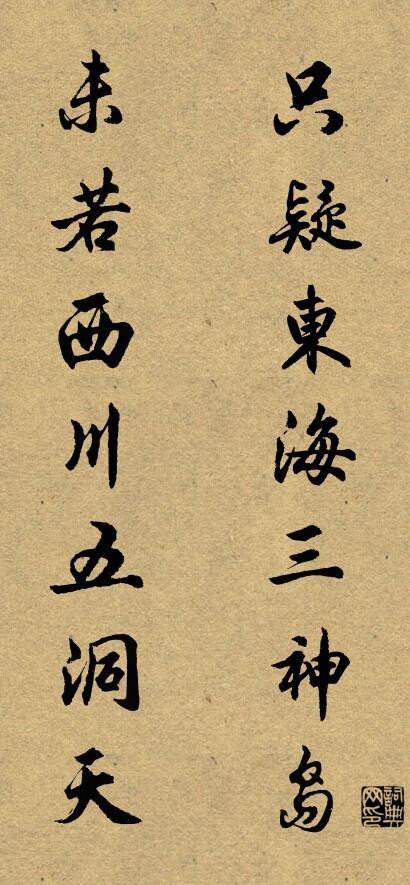 只疑東海三神島
未若西川五洞天
詞典網印